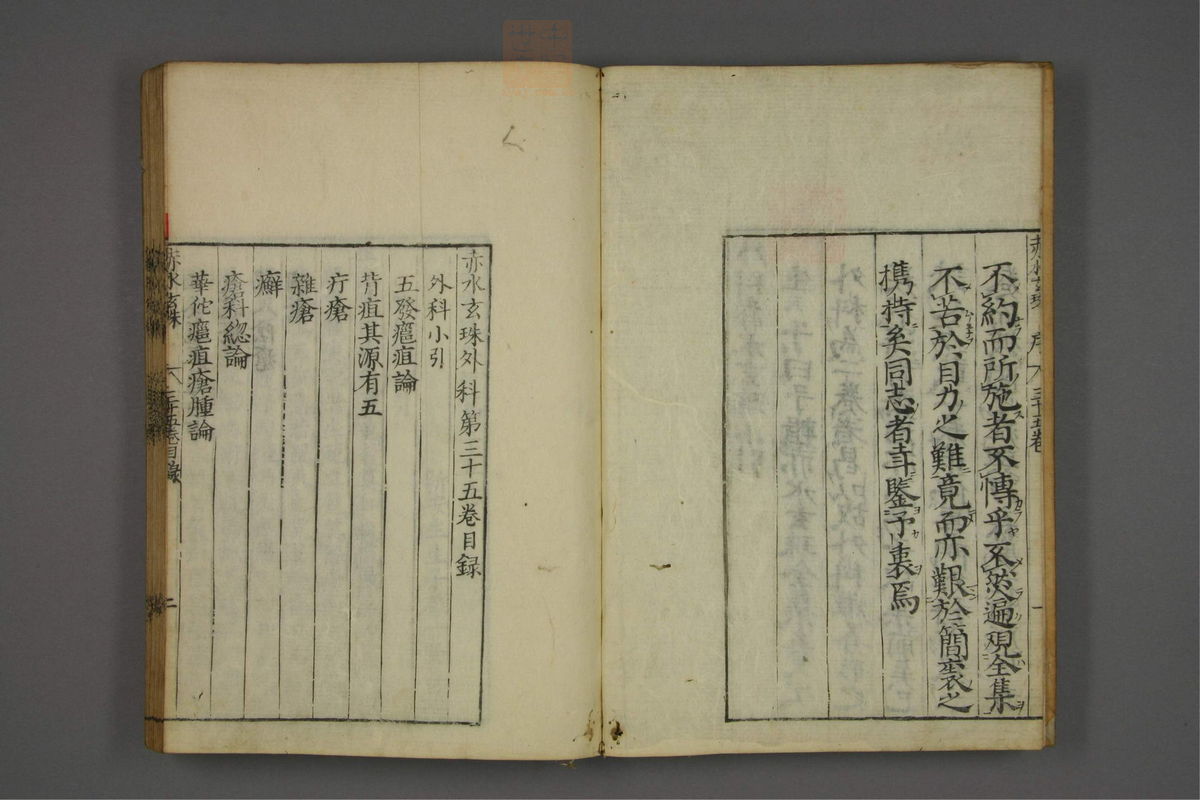 不約而所施者不博乎不然遍覌全集
不苦於目力之難竟而亦艱於簡袠之
携持矣同志者幸鑒予衷焉
赤水玄珠 序 三十五卷 一
赤水玄珠外科第三十五卷目録
外科小引
五發癰疽論
背疽其源有五
疔瘡
雜瘡
癬
瘡科緫論
華佗癰疽瘡腫論
赤水玄珠 三十五卷目録 二